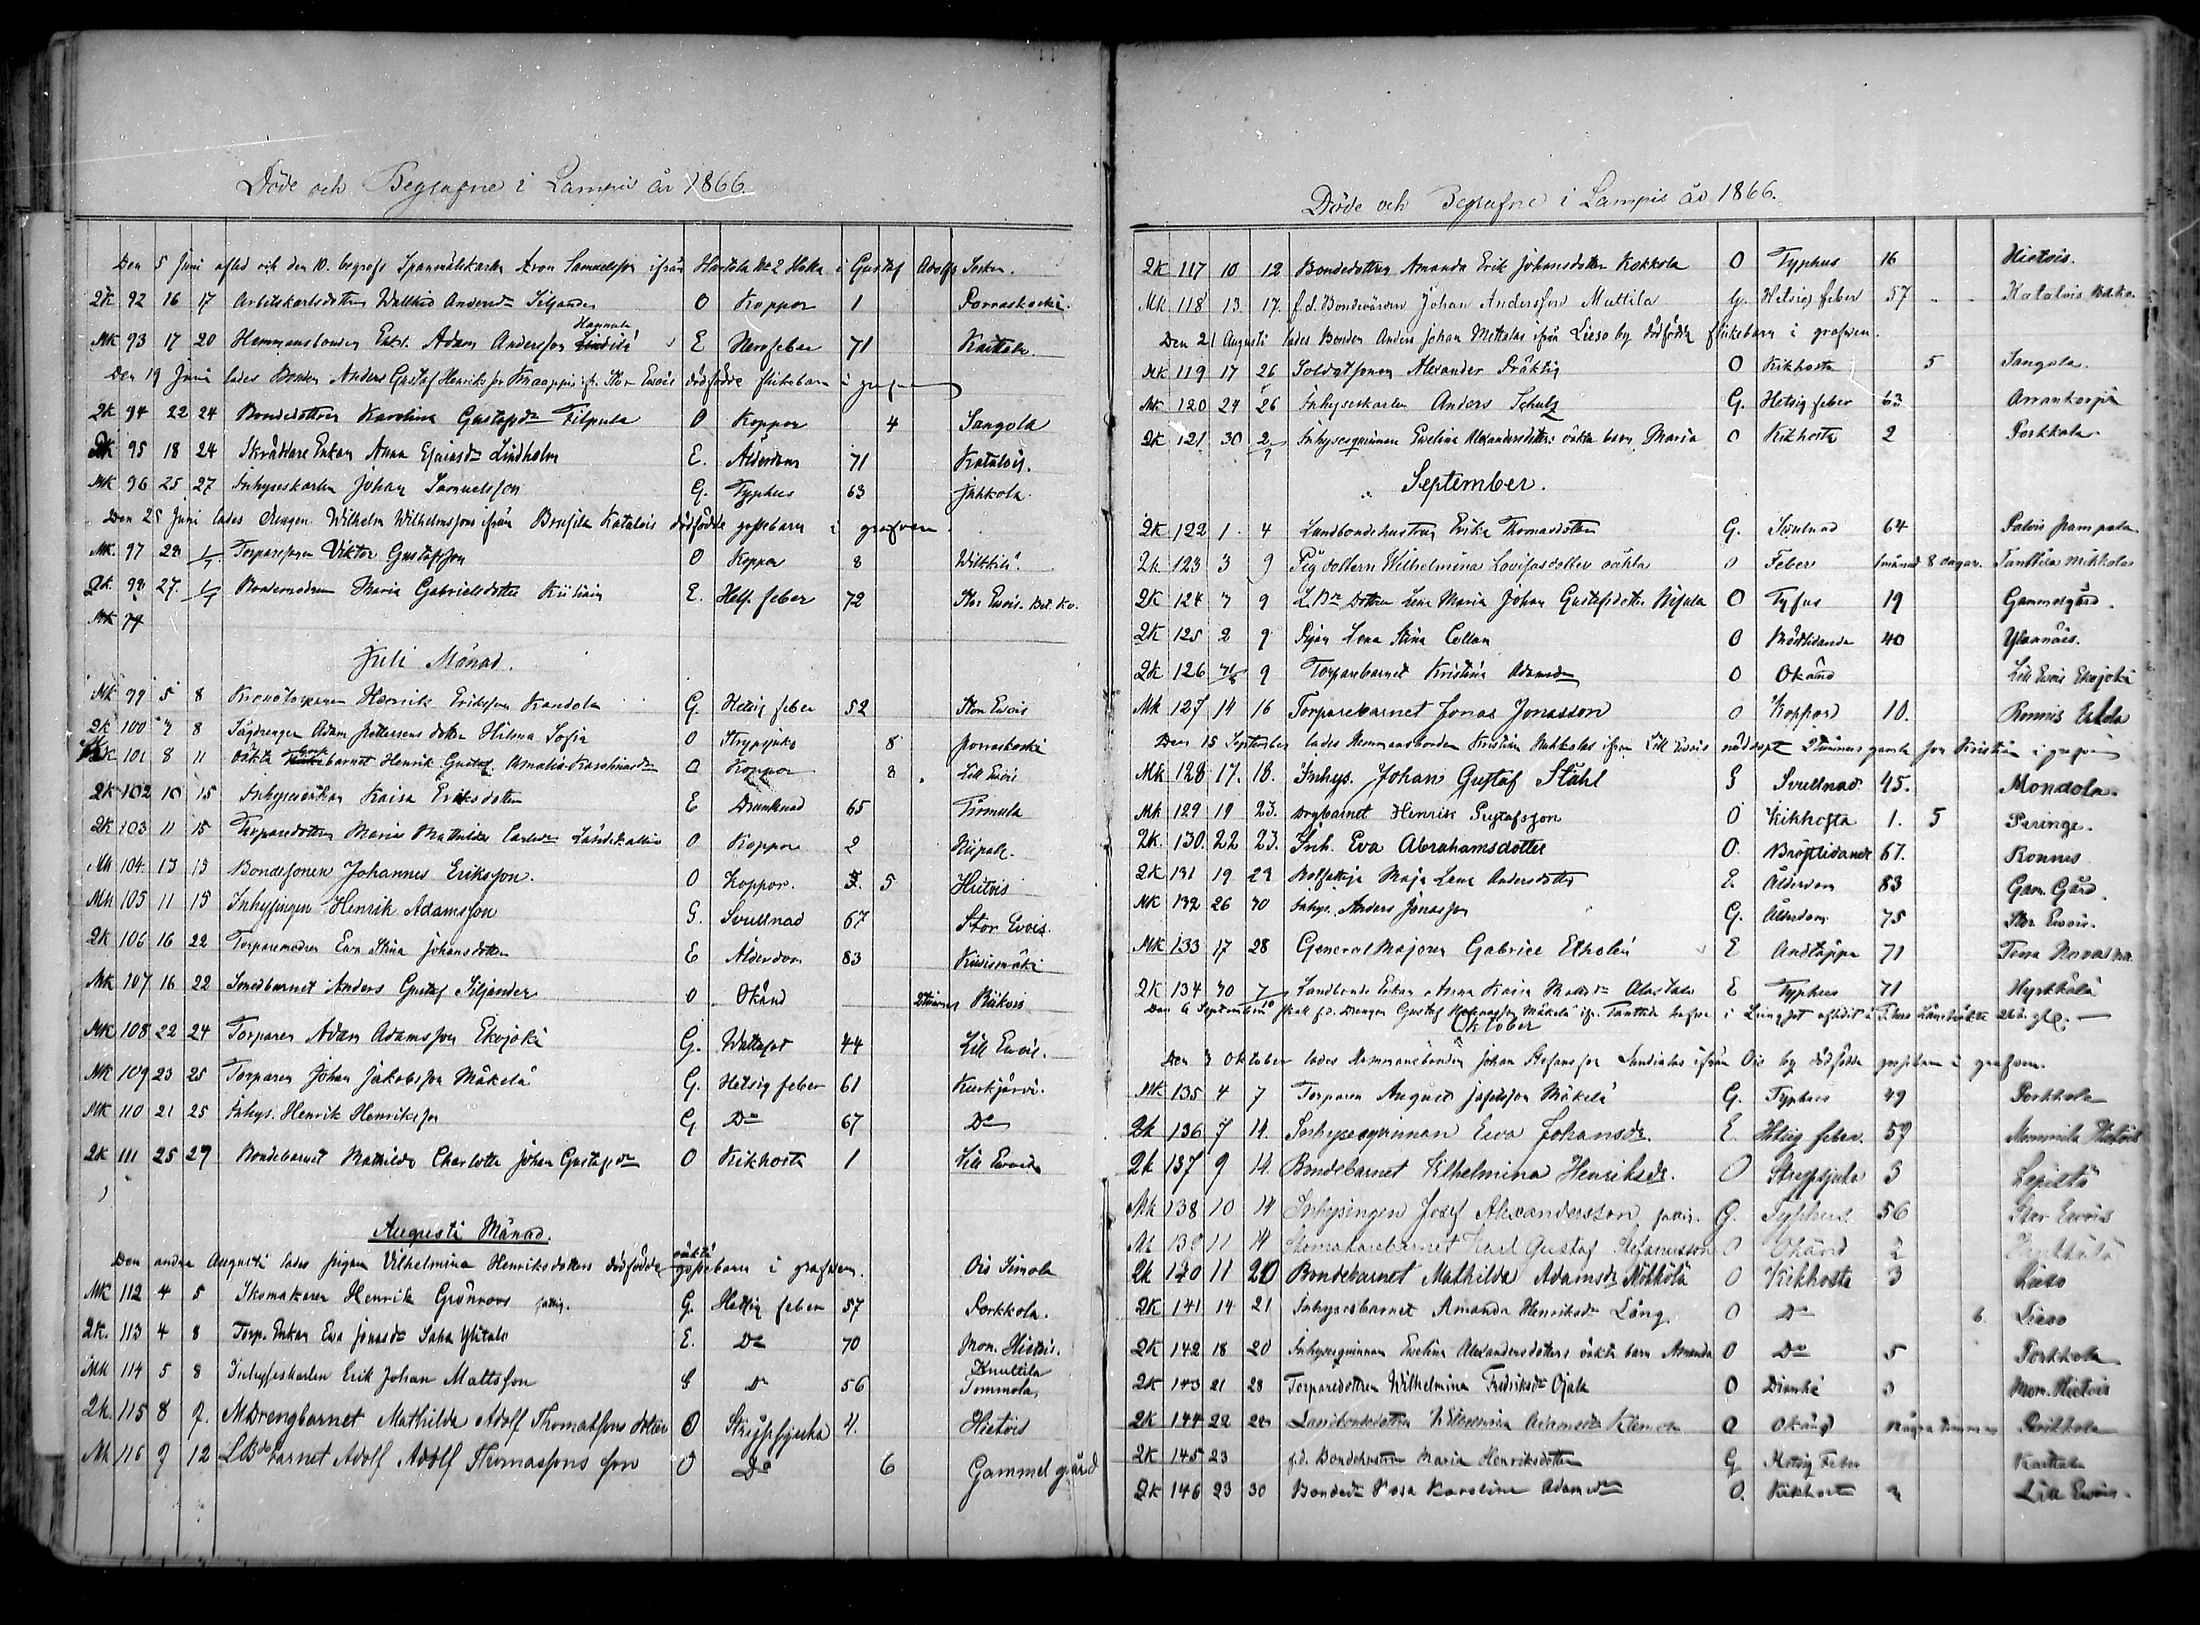 Döde och Begrafne i Lampis år 1866.
Den 5 Juni afled och den 10. begrofs Spanmålskarlen Aron Samuelsson ifrån Hartola No 2 Hakka i Gustaf Adolfs Socken.
QK 92 16 17 Arbetskarlsdottren Andersdr Siljander O Koppor 1 Porraskoski.
MK 93 17 20 Hemmansbonden Enkl. Adam Andersson Hannula E Nervfeber 71 Kaitala.
Den 19 Juni lades Bonden Anders Gustaf Henriksson Knaappis ifr. Stor Ewois dödfödde flickebarn i grafven
QK 94 22 24 Bondedottren Karolina Gustafsdr Filpula O Koppor 4 Sangola
QK 95 18 24 Skräddare Enkan Anna Lindholm E. Ålderdom 71 Katalois.
MK 96 25 27 Inhyseskarlen Johan Samuelsson G. Typhus 63 Jahkola.
Den 25 Juni lades drengen Wilhelm Wilhelmssons ifrån Katalois dödfödde gossebarn i grafven.
MK. 97 28 1/7 Torparesonen Viktor Gustafsson O Koppor 8
QK. 98 27. 1/7 Bondemodren Maria Gabrielsdotter E. Hets. feber 72 Stor Ewois.
MK 99
Juli Månad.
MK 99 5 8 Kronotorparen Henrik Eriksson Kandola G. Hetsig feber 52 Stor Ewois
QK 100 7 8 Sågdrengen Adam dotter Hilma Sofia O Strypsjuka 8 Porraskoski
MK 101 8 11 Oäkta Gossebarnet Henrik Gustaf Amalia Karolinasdr O Koppor 8 Lill Ewois
QK 102 10 15 Inhysesenkan Kaisa Eriksdotter E Drunknad 65 Tömula
QK 103 11 15 Torparedottren Maria Mathilda Carlsdr O Koppor 2
MK 104. 13 15 Bondesonen Johannes Eriksson. O Koppor. 5 Hietois
MK 105 11 15 Inhysingen Henrik Adamsson G. Svullnad 67 Stor Evois.
QK 106 16 22 Torparemodren Eva Stina Johansdotter E Ålderdom 83 Kiisimäki
MK 107 16 22 Smedbarnet Anders Gustaf Siljander O Okänd 2 timmar
MK 108 22 24 Torparen Adam Adamsson Ekojoki G. Wattusot 44 Lill Ewois.
MK 109 23 25 Torparen Johan Jakobsson Mäkelä G. Hetsig feber 61 Kuorkjärvi.
MK 110 21 25 Inhys. Henrik Henriksson G Do 67 Do
QK 111 25 29 Bondebarnet Mathilda Charlotta Johan Gustafsdr O Kikhosta 1 Lill Ewois
Augusti Månad.
Den andra Augusti lades pigan Vilhelmina Henriksdotters dödfödde oäkta gossebarn i grafven. Ois Simola
MK 112 4 5 Skomakaren Henrik Grönroos fattig. G. Hetsig feber 57 Porkkola.
QK. 113 4 8 Torp. Enkan Eva Jonasdr E. Do 70 Mom. Hietois.
MK 114 5 8 Inhyseskarlen Erik Johan Mattsson G Do 56 Knuttila Tommola
QK. 115 8 9. MDrengbarnet Mathilda Adolf Thomassons dotter O Strypsjuka 4. Hietois
MK 116 9 12 LBdebarnet Adolf Adolf Thomassons son O Do 6 Gammelgård
Döde och Begrafne i Lampis år 1866.
QK 117 10 12 Bondedottren Amanda Erik Johansdotter Kokkola O Typhus 16 Hietois.
MK 118 13 17. f.d. Bondevärden Johan Andersson Mattila G. Hetsig feber 57 Katalois
Den 21 Augusti lades Bonden Anders Johan Mettalas ifrån Lieso by dödfödde flickebarn i grafven.
MK 119 17 26 Soldatsonen Alexander Präktig O Kikhosta 5 Sangola.
MK 120 24 26 Inhyseskarlen Anders Schulz G. Hetsig feber 63 Arrankorpi
QK 121 30 2/9 Inhysesqvinnan Ewelina Alexandersdotters oäkta barn Maria O Kikhosta 2 Porkkola
September.
QK 122 1. 4 Landbondehustrun Erika Thomasdotter G. Svulnad 64
QK 123 3 9 Pigdottern Wilhelmina Lovisasdotter oäkta O Feber 1 månad 8 dagar. Tanttila Mikkolas
QK 124 7 9 LBde Dottren Lena Maria Johan Gustafsdotter O Tyfus 19 Gammelgård.
QK 125 2 9 Pigan Lena Stina Collan O Bröstlidande 40
QK 126 9 Torparebarnet Kristina Adamsdr O Okänd Lill Ewois Ekojoki
MK 127 14 16 Torparebarnet Jonas Jonasson O Koppor 10. Ronnis Eskola
Den 15 September lades Hemmansbonden Kristian Mikkolas ifrån Lill Ewois nöddöpt 2 timmar gamla son Kristian i grafven
MK 128 17. 18. Inhys. Johan Gustaf Ståhl G Svullnad. 45. Mondola.
MK 129 19 23. Drgbarnet Henrik Gustafsson O Kikhosta 1. 5 Paringe.
QK. 130. 22 23. Inh. Eva Abrahamsdotter O. Bröstlidande 67. Ronnis
QK 131 19 23 Maja Lena Andersdotter E. Ålderdom 83 Gam. Gård.
MK 132 26 30 Inhys. Anders Jonasson G. Ålderdom. 75 Stor Ewois.
MK 133 17 28 GeneralMajoren Gabriel Etholén E Andtäppa 71
QK 134 30 7 Landbonde Enkan Anna Kaisa Mattsdr Alastalo E Typhus 71 Hyrkkälä
Oktober
Den 3 Oktober lades Hemmansbonden Johan Stefansson ifrån Ois by dödfödde gossebarn i grafven.
MK 135 4 7 Torparen August Josefsson Mäkelä G. Typhus 49 Porkkola
QK 136 7 14. Inhysesqvinnan Eva Johansdr. E. Hetsig feber. 59 Mommila Hietois
QK 137 9 14. Bondebarnet Vilhelmina Henriksdr. O Strypsjuka 3 Lepistö
MK 138 10 14 Inhysingen Josef Alexandersson fattig. G. Typhus. 56 Stor Evois
MK 139 11 14 Skomakarebarnet Karl Gustaf Stefansson O Okänd 2 Hyrkkälä
QK 140 11 20 Bondebarnet Mathilda Adamsdr O Kikhosta 3 Lieso
QK 141 14 21 Inhysesbarnet Amanda Henriksdr Lång O Do 6. Lieso
QK 142 18 20 Inhysesqvinnan Evelina Alexandersdotters oäkta barn Amanda O Do 5 Porkkola
QK 143 21 28 Torparedottren Wilhelmina Fredriksdr Ojala O Mom. Hietois
QK 144 22 Landbondedottren Wilhelmina Adamsdr O Okänd några timmar Porkkola
QK 145 23 f.d. Bondehustrun Maria Henriksdotter G Hetsig Feber Kaitala
QK 146 23 30 Bondedr Rosa Karolina Adamsdr O. Kikhosta Lill Ewois.